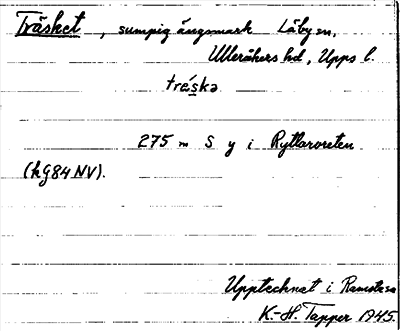 Träsket, sumpig ängsmark Läby sn,
Ulleråkers hd, Upps l.
tràskə
275 m S y i Ryttarvreten
(kg84NV).
Upptecknat i Ramstasa
K.-H. Tapper 1945.